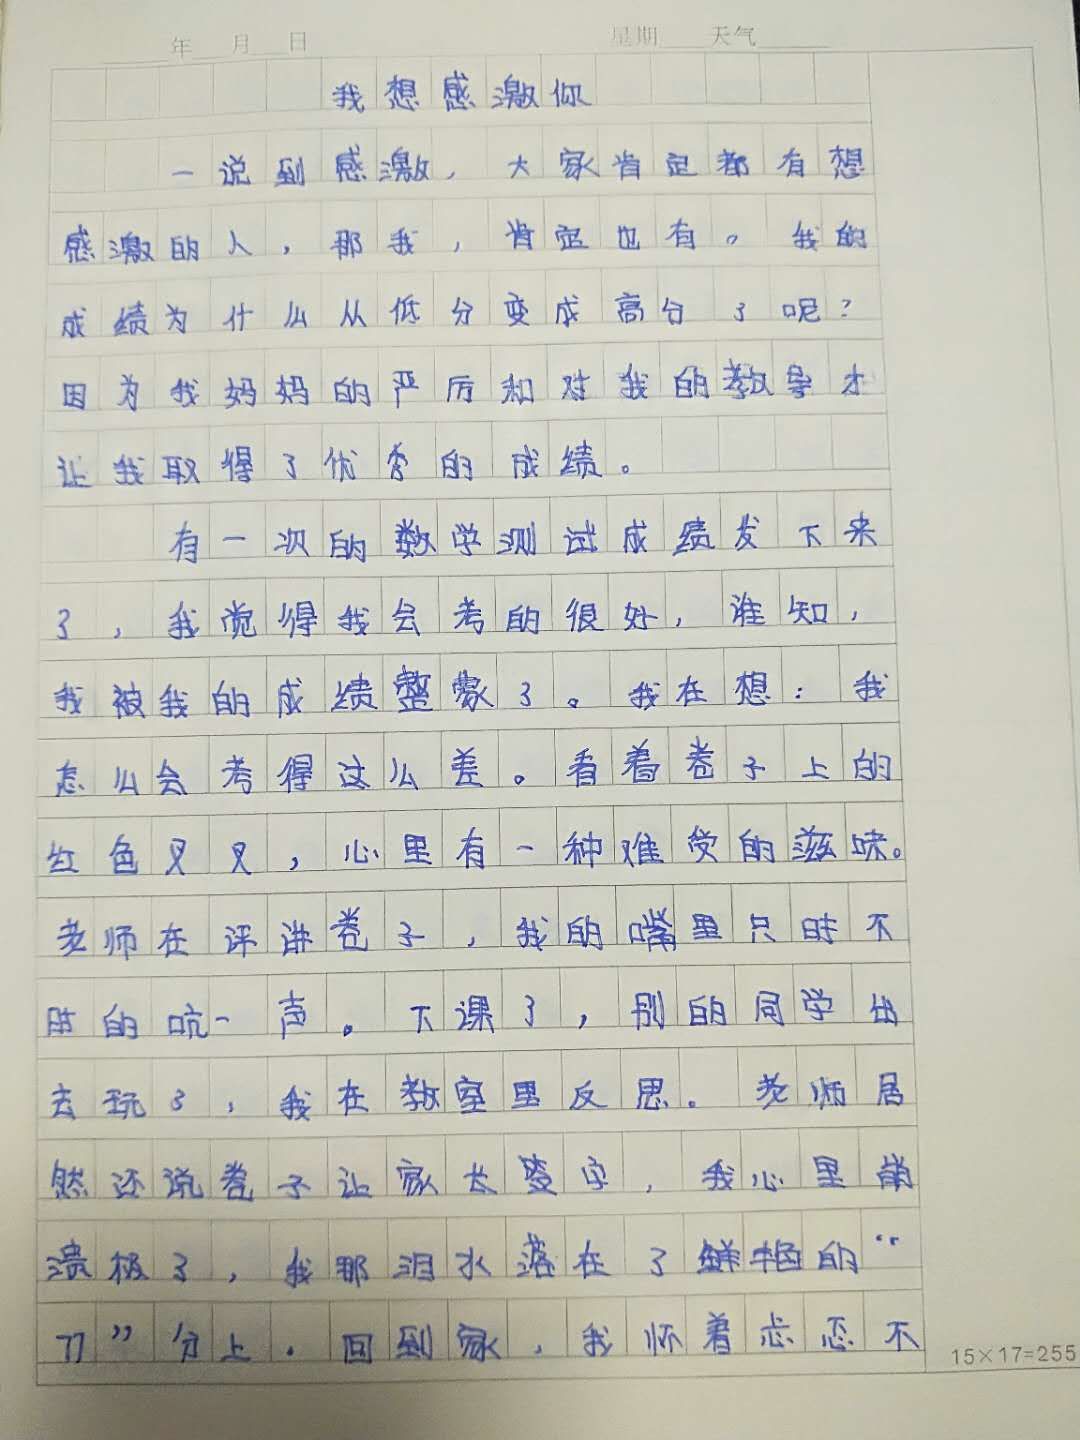 年 月 日 星期 天气
我想感激你
一说到感激，大家肯定都有想
感激的人，那我，肯定也有。我的
成绩为什么从低分变成高分了呢？
因为我妈妈的严厉和对我的教导才
让我取得了优秀的成绩。
有一次的数学测试成绩发下来
了，我觉得我会考的很好，谁知，
我被我的成绩整蒙了。我在想：我
怎么会考得这么差。看着卷子上的
红色叉叉，心里有一种难受的滋味。
老师在评讲卷子，我的嘴里只时不
时的吭一声。下课了，别的同学出
去玩了，我在教室里反思。老师居
然还说卷子让家长签字，我心里崩
溃极了，我那泪水落在了鲜艳的“
77”分上。回到家，我怀着忐忑不
15×17=255